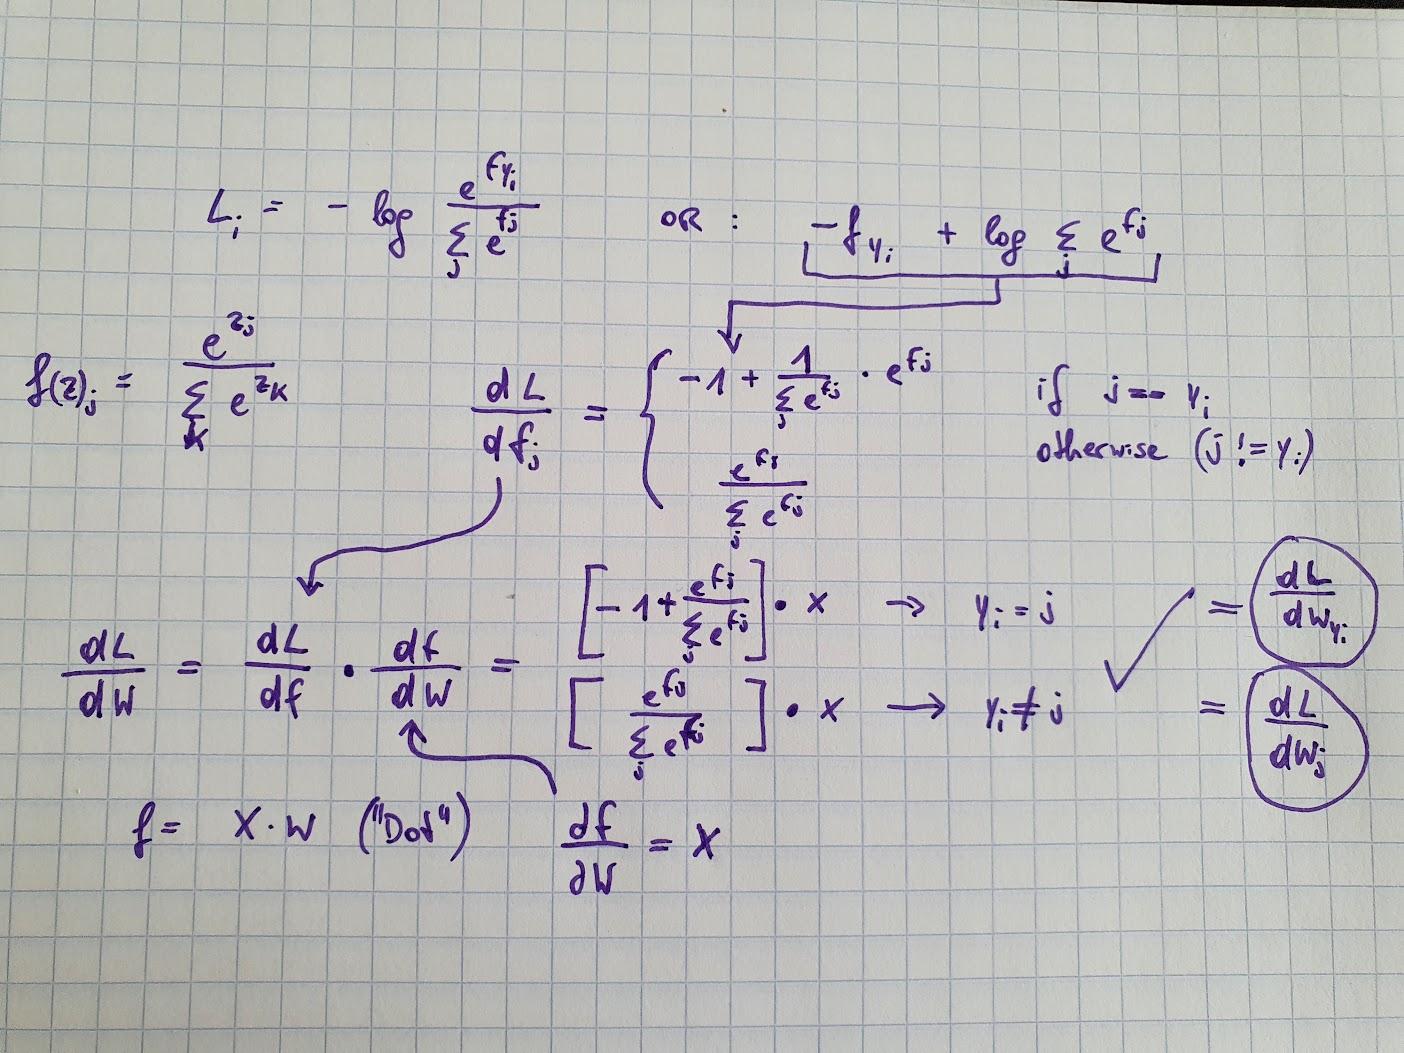 L_i = - log e^{f_{y_i}} / Σ_j e^{f_j} OR : -f_{y_i} + log Σ_j e^{f_j}
f(z)_j = e^{z_j} / Σ_k e^{z_k}
dL / df_j = { -1 + 1 / Σ_j e^{f_j} · e^{f_j} if j == y_i
e^{f_j} / Σ_j e^{f_j} otherwise (j != y_i)
dL / dW = dL / df · df / dW = [ -1 + e^{f_j} / Σ_j e^{f_j} ] · X → y_i = j = dL / dw_{y_i}
[ e^{f_j} / Σ_j e^{f_j} ] · X → y_i ≠ j ✓ = dL / dw_j
f = X · W ("Dot") df / ∂W = X